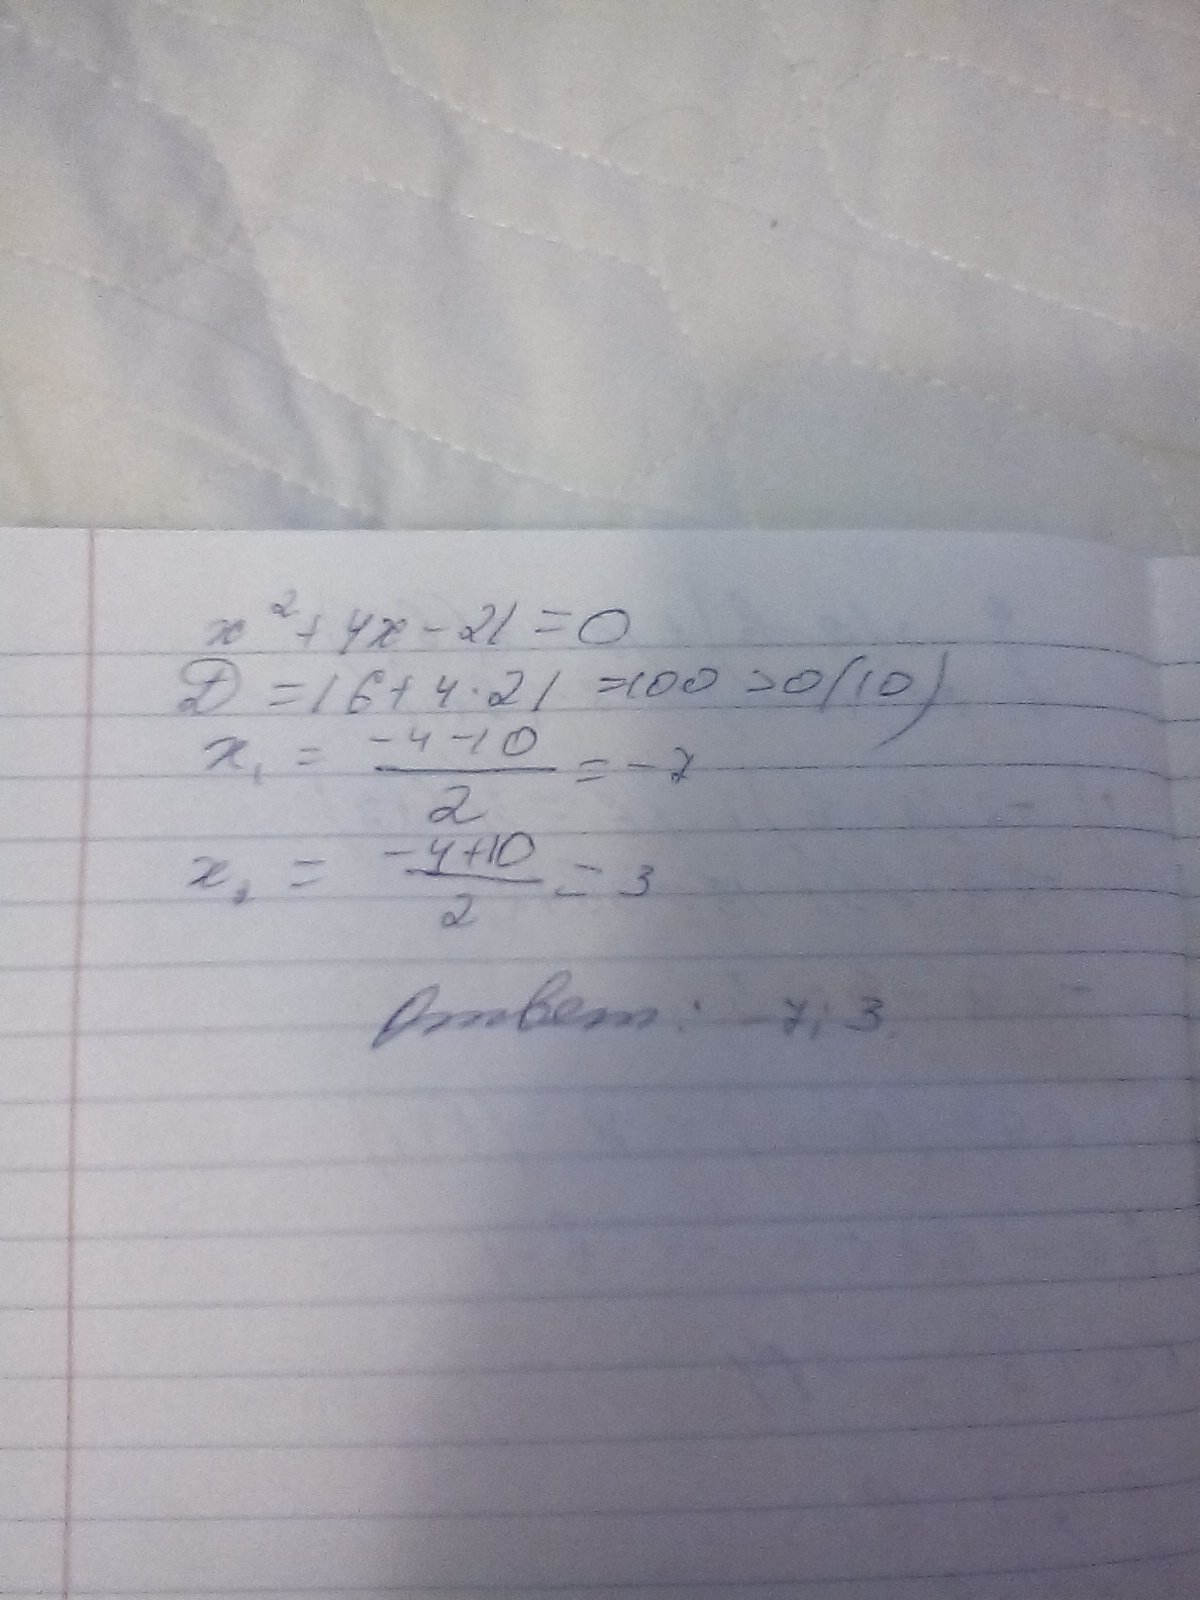 x² + 4x - 21 = 0
D = 16 + 4 · 21 = 100 > 0 (10)
x₁ = (-4 - 10)/2 = -7
x₂ = (-4 + 10)/2 = 3
Ответ: -7; 3.